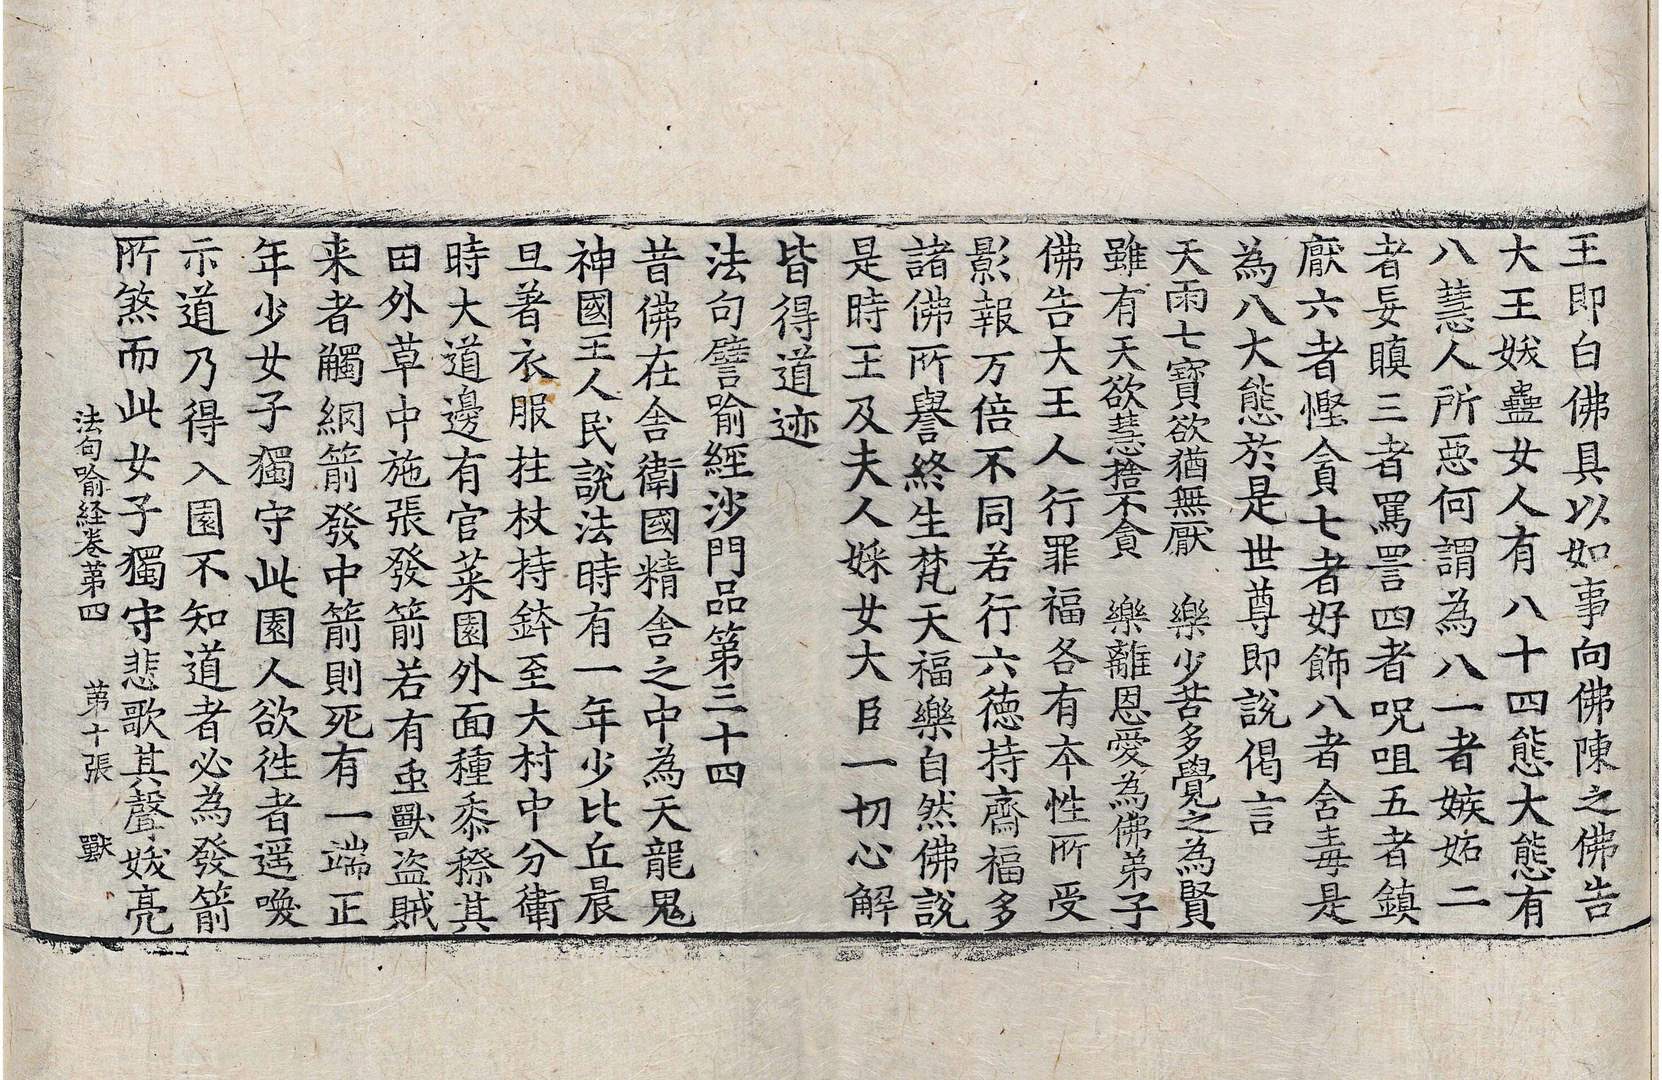 王即白佛具以如事向佛陳之佛告
大王妭蠱女人有八十四態大態有
八慧人所惡何謂為八一者嫉妬二
者妄瞋三者罵詈四者呪咀五者鎮
厭六者慳貪七者好飾八者含毒是
為八大態於是世尊即說偈言
天雨七寶欲猶無厭　樂少苦多覺之為賢
雖有天欲慧捨不貪　樂離恩愛為佛弟子
佛告大王人行罪福各有本性所受
影報万倍不同若行六德持齋福多
諸佛所譽終生梵天福樂自然佛說
是時王及夫人婇女大臣一切心解
皆得道迹
法句譬喻經沙門品第三十四
昔佛在舍衛國精舍之中為天龍鬼
神國王人民說法時有一年少比丘晨
旦著衣服拄杖持鉢至大村中分衛
時大道邊有官菜園外面種黍穄其
田外草中施張發箭若有虫獸盜賊
来者觸網箭發中箭則死有一端正
年少女子獨守此園人欲徃者遥喚
示道乃得入園不知道者必為發箭
所煞而此女子獨守悲歌其聲妭亮
法句喻経卷第四　第十張　獸